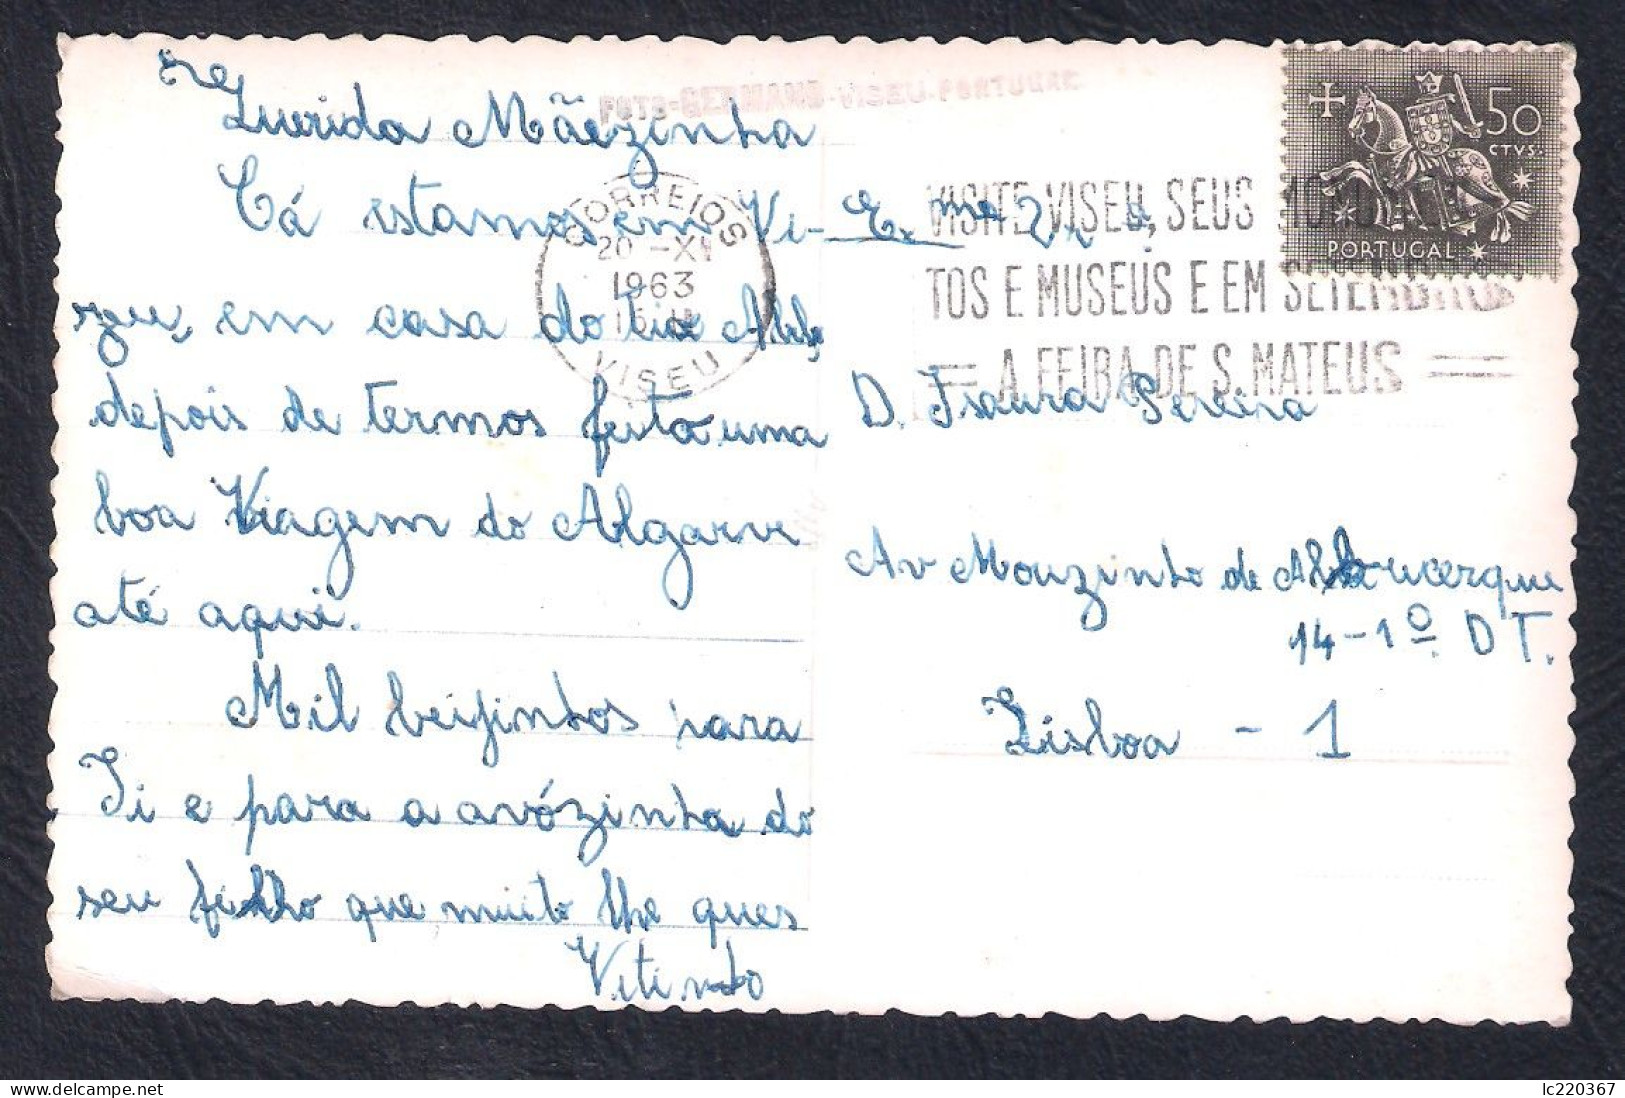 Querida Mãezinha
Cá estamos em Vi-
zeu, em casa do tio
depois de termos feito uma
boa Viagem do Algarve
até aqui.
Mil beijinhos para
Ti e para a avózinha do
seu filho que muito lhe ques
Vitinho
FOTO-GERMANO-VISEU-PORTUGAL
CORREIOS
20-XI
1963
VISEU
VISITE VISEU, SEUS MONUMEN
TOS E MUSEUS E EM SETEMBRO
A FEIRA DE S. MATEUS
50
CTVS.
PORTUGAL
Ex.ma Sr.ª
D. Isaura Pereira
Av Mouzinho de Albucerque
14-1º DT.
Lisboa - 1
delcampe.net
lc220367